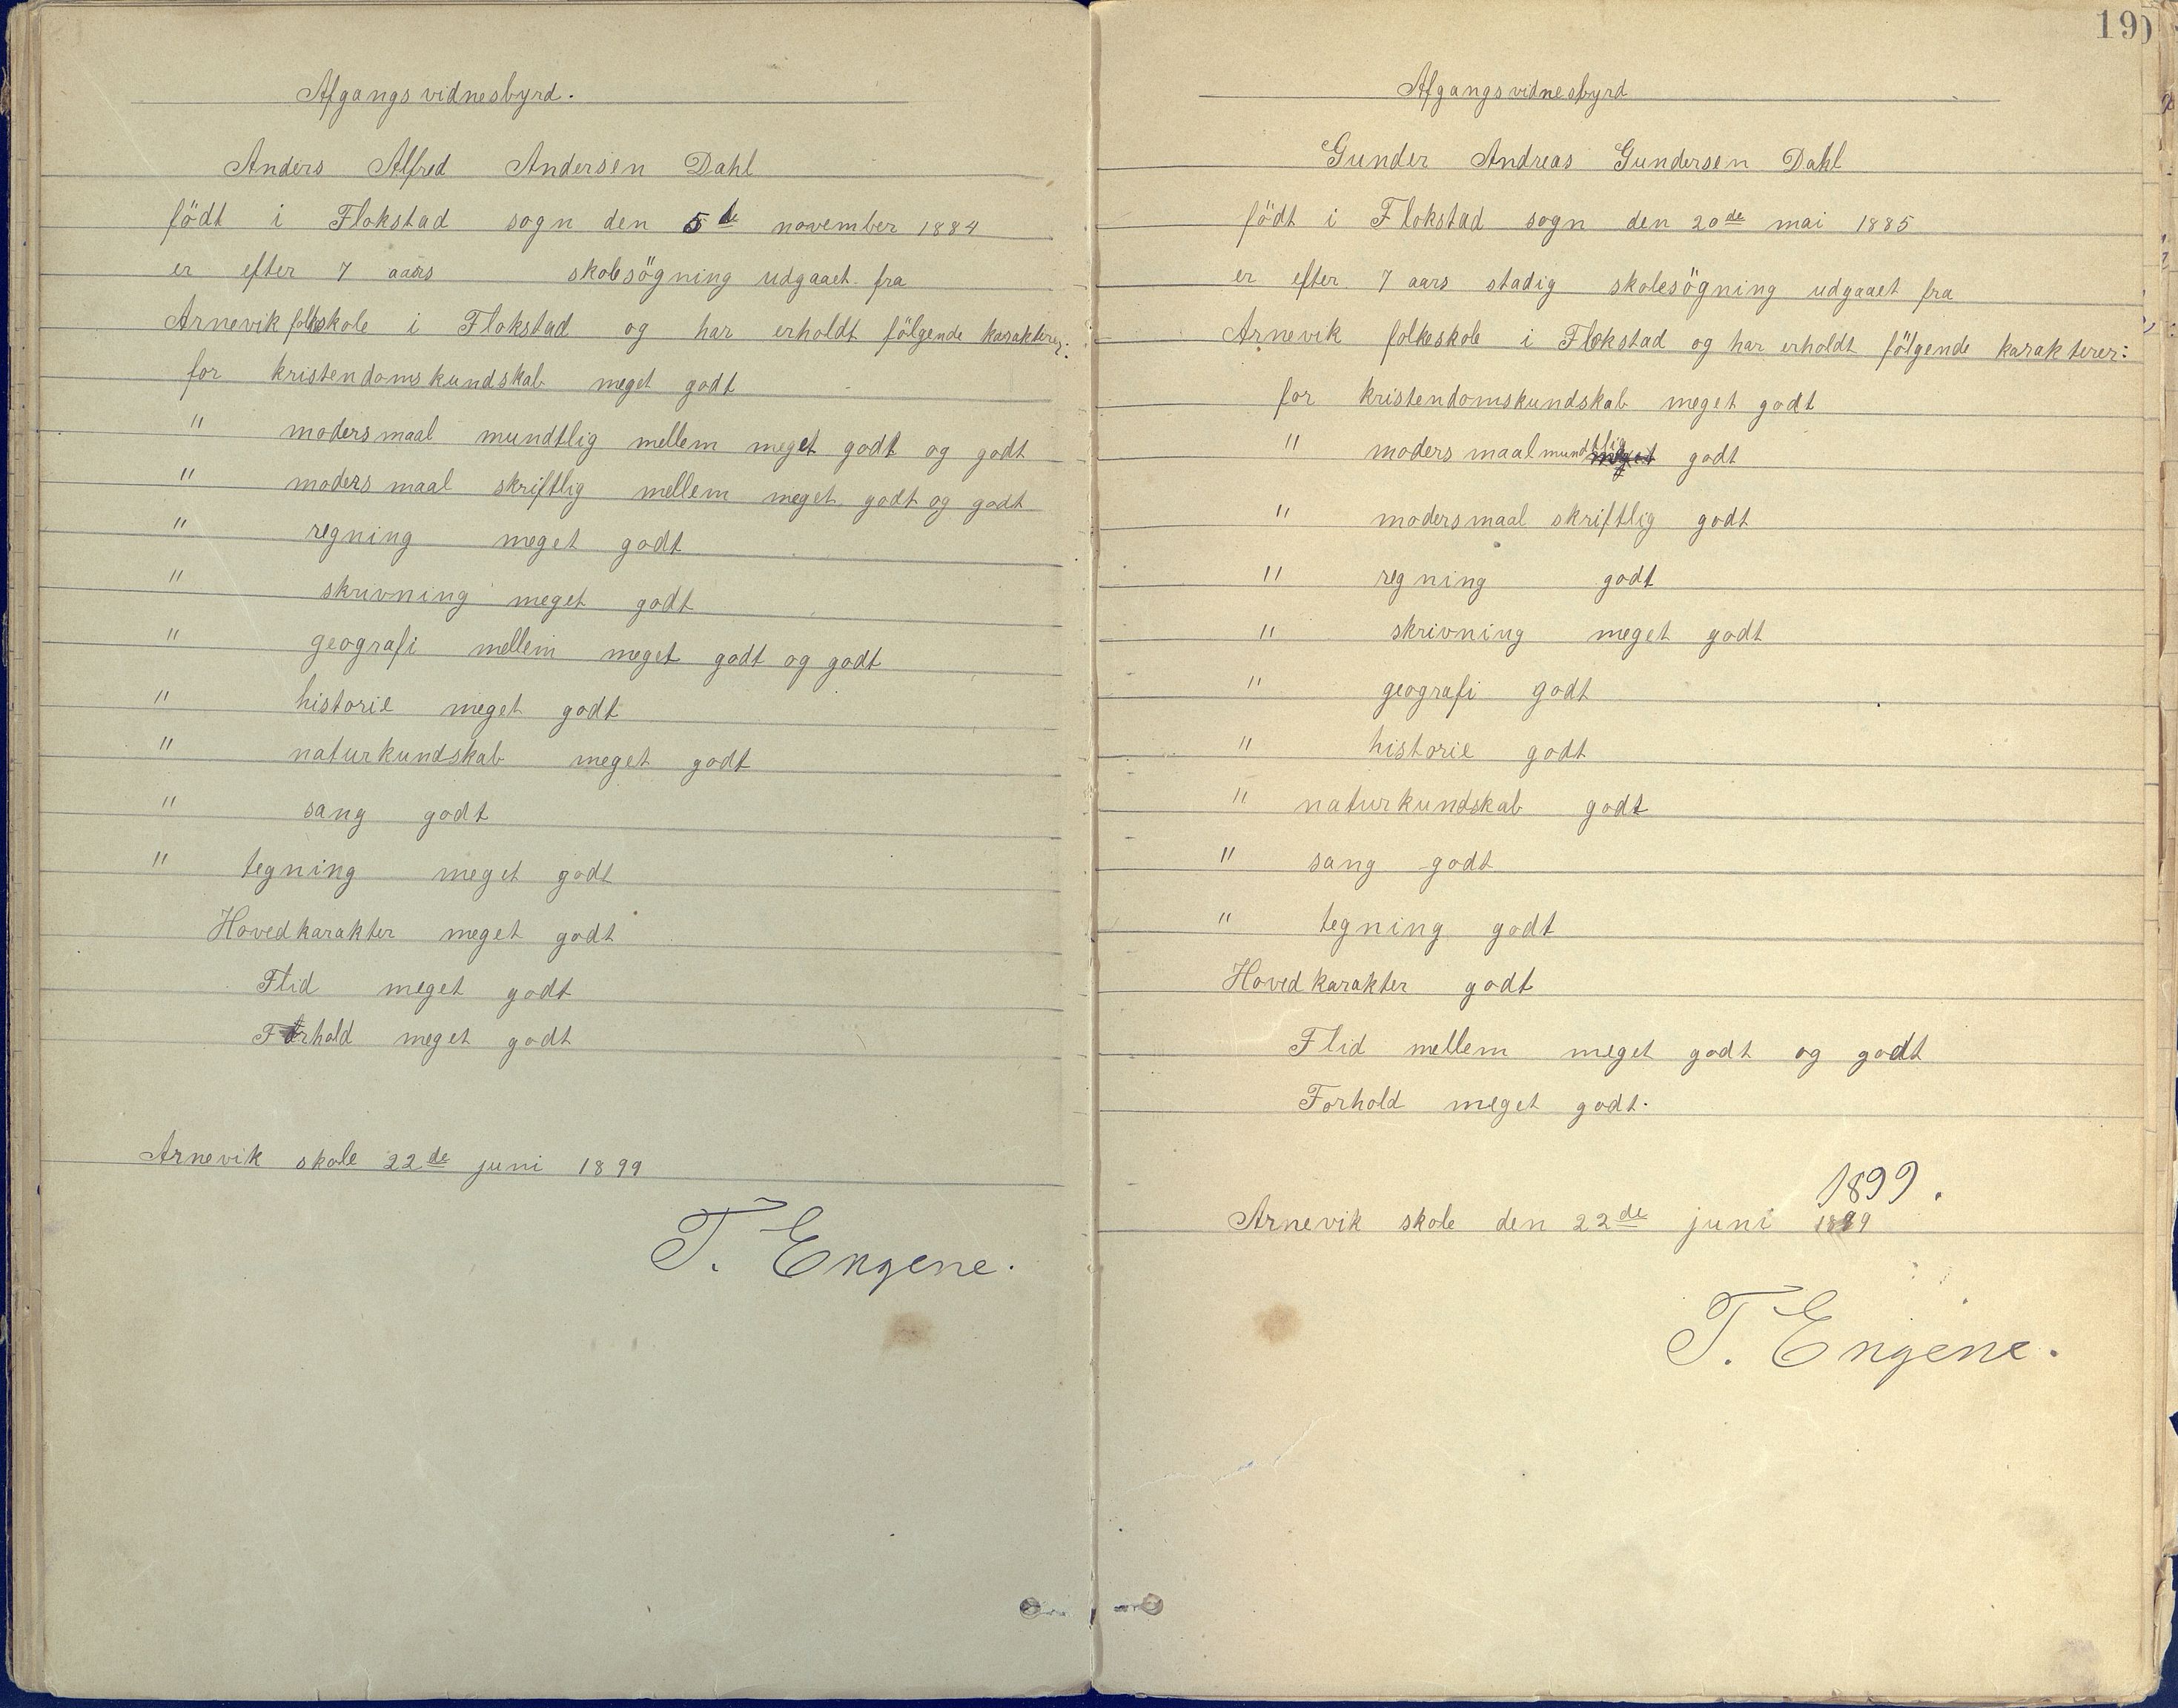 Afgangsvidnesbyrd.
Anders Alfred Andersen Dahl
födt i Flokstad sogn den 5te november 1884
er efter 7 aars skolesögning udgaaet fra
Arnevik folkeskole i Flokstad og har erholdt fölgende karakterer:
for kristendomskundskab meget godt
" modersmaal mundtlig mellem meget godt og godt
" modersmaal skriftlig mellem meget godt og godt
" regning meget godt
" skrivning meget godt
" geografi mellem meget godt og godt
" historie meget godt
" naturkundskab meget godt
" sang godt
" tegning meget godt
Hovedkarakter meget godt
Flid meget godt
Forhold meget godt
Arnevik skole 22de juni 1899
T. Engene.
190
Afgangsvidnesbyrd
Gunder Andreas Gundersen Dahl
födt i Flokstad sogn den 20de mai 1885
er efter 7 aars stadig skolesögning udgaaet fra
Arnevik folkeskole i Flokstad og har erholdt fölgende karakterer:
for kristendomskundskab meget godt
" modersmaal mundtlig meget godt
" modersmaal skriftlig godt
" regning godt
" skrivning meget godt
" geografi godt
" historie godt
" naturkundskab godt
" sang godt
" tegning godt
Hovedkarakter godt
Flid mellem meget godt og godt
Forhold meget godt.
1899.
Arnevik skole den 22de juni 1899
T. Engene.